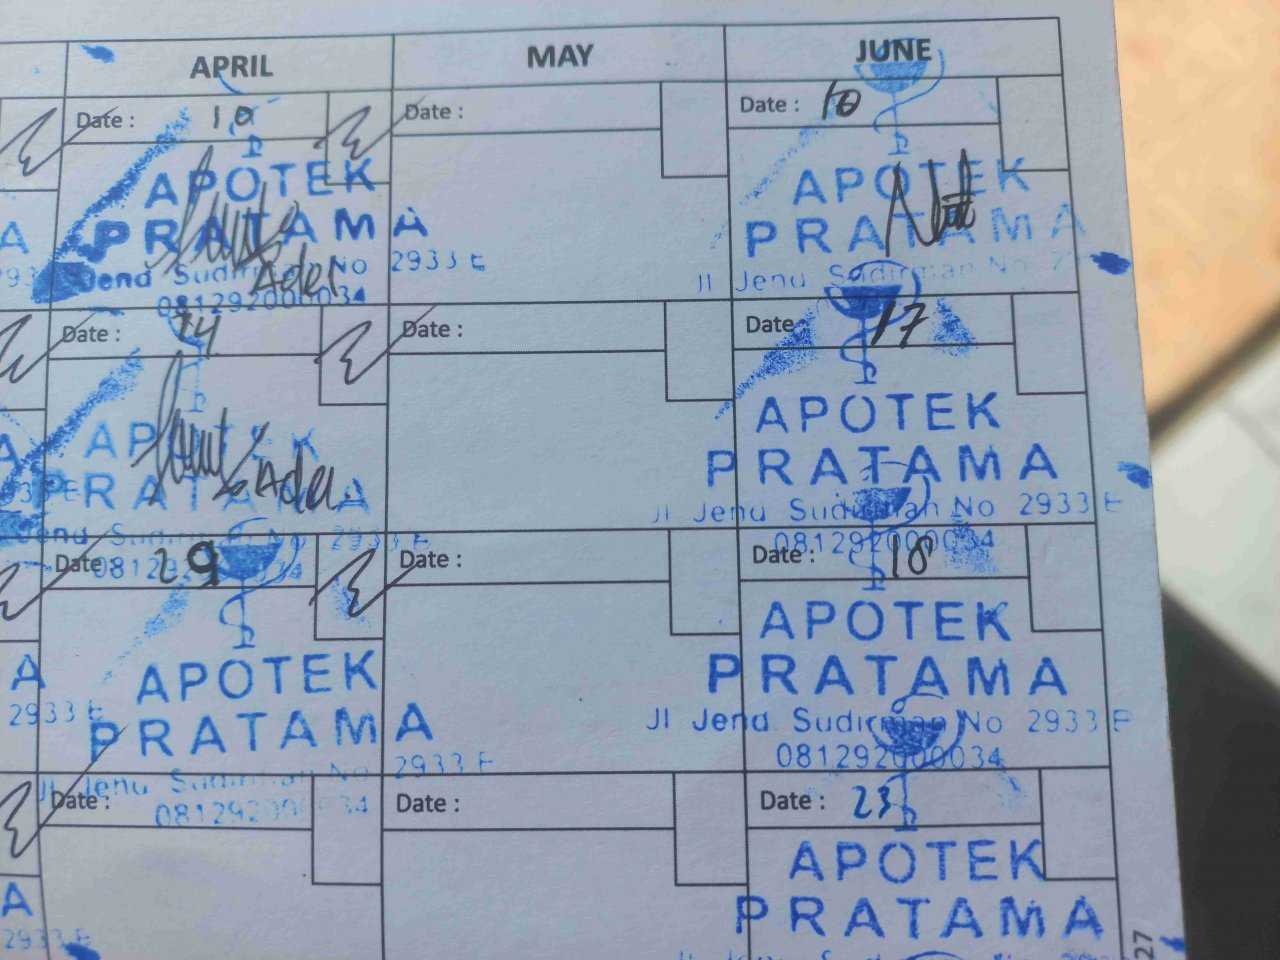 APRIL MAY JUNE
Date : 10 Date : Date : 10
APOTEK APOTEK
PRATAMA PRATAMA
Jend Sudirman No 2933 E Jl Jend Sudirman No
Ader
081292000034
Date : 14 Date : Date : 17
APOTEK APOTEK
PRATAMA PRATAMA
Ader
Jend Sudirman No 2933 E Jl Jend Sudirman No 2933 E
081292000034 081292000034
Date 29 Date : Date : 18
APOTEK APOTEK
A PRATAMA PRATAMA
2933 E Jl Jend Sudirman No 2933 E Jl Jend Sudirman No 2933 E
081292000034 081292000034
Date : Date : Date : 23
APOTEK
A PRATAMA
2933 E
27